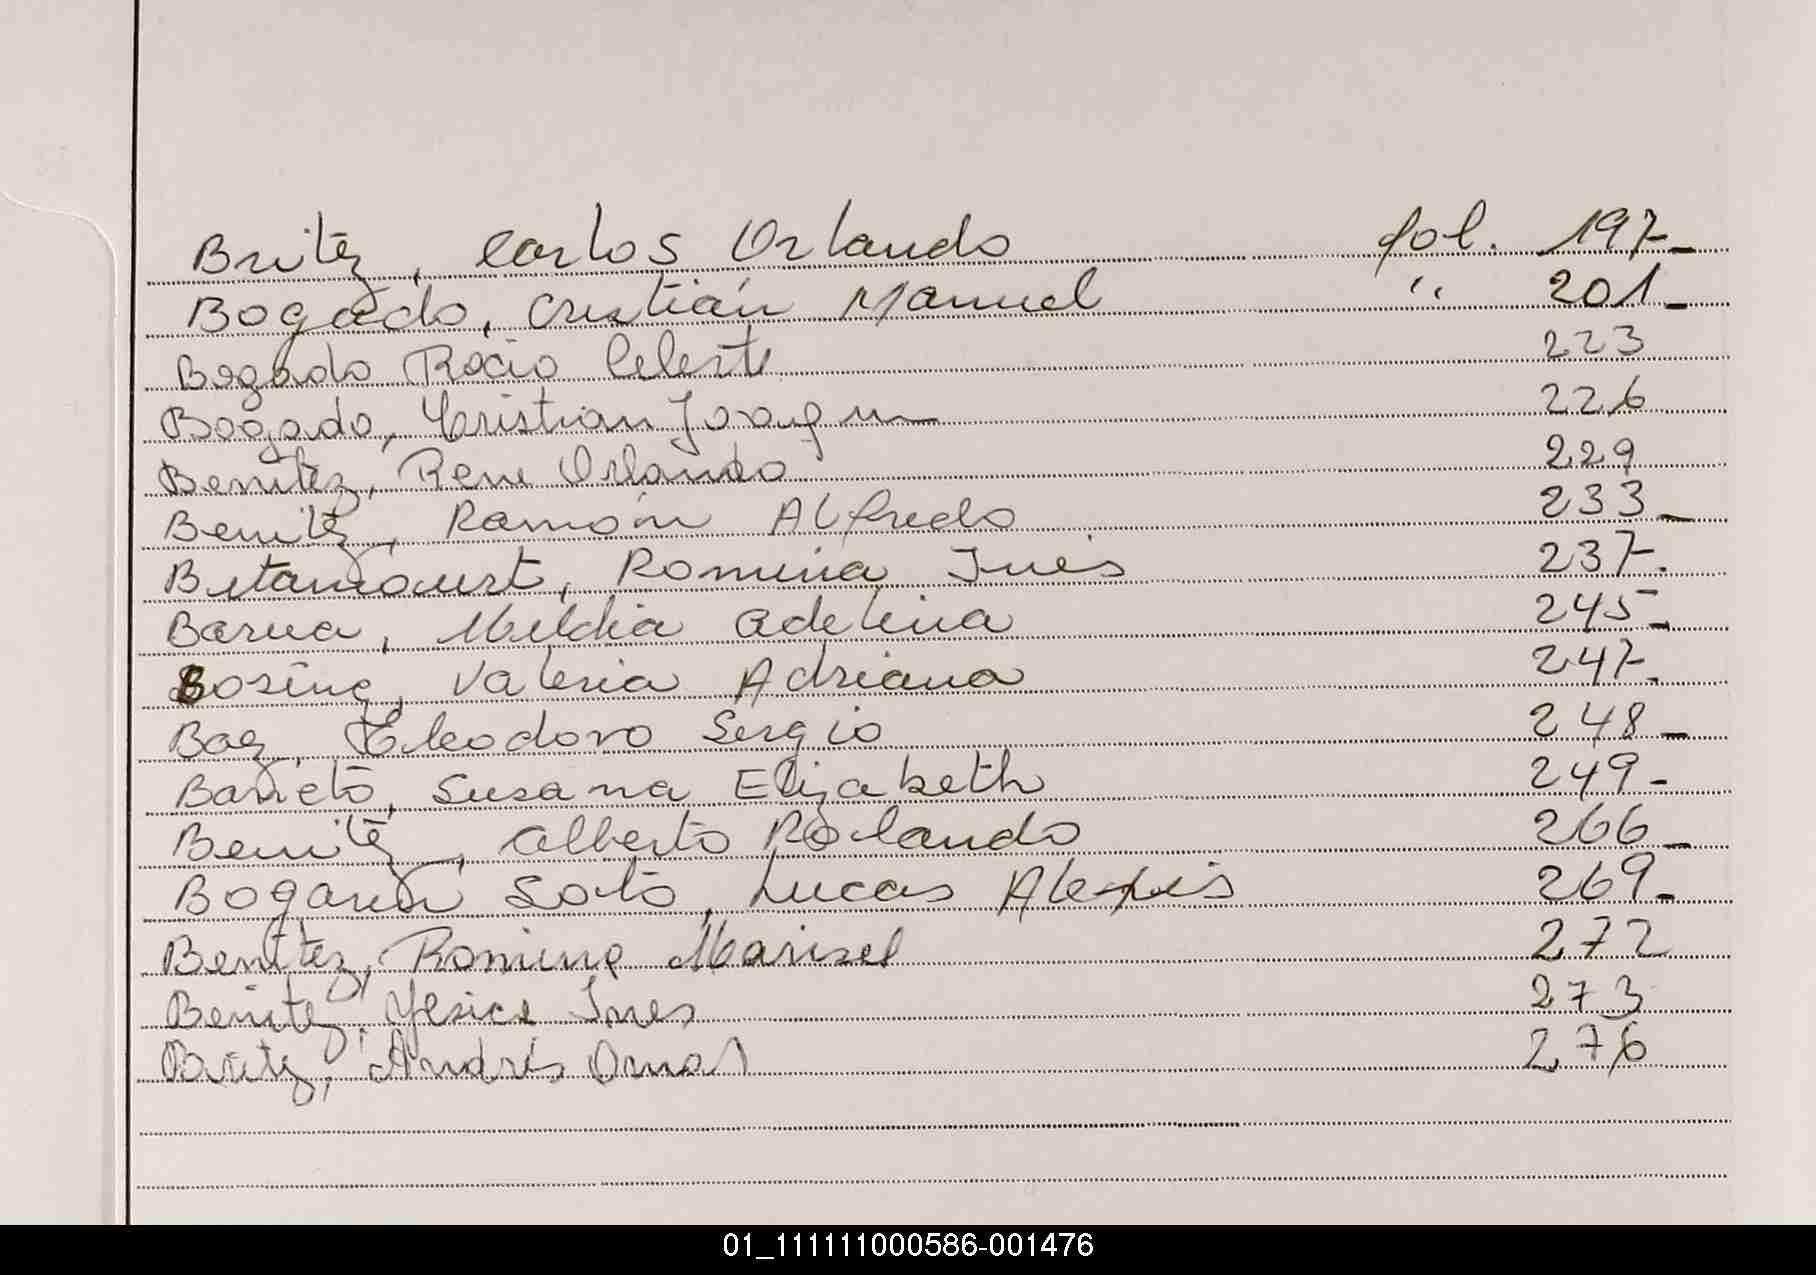 Britez, Carlos Orlando fol. 197-
Bogado, Cristián Manuel " 201-
Bogado Rocio Celeste 223
Bogado, Cristian Joaquin 226
Benitez, Rene Orlando 229
Benitez, Ramón Alfredo 233-
Betancourt, Romina Inés 237.
Barua, Adelina 245-
Valeria Adriana 247.
Baez, Eleodoro Sergio 248-
Barreto, Susana Elizabeth 249-
Benitez, Alberto Rolando 266-
Soto, Lucas Alexis 269-
Benitez, Romina Marisel 272
Benitez, Yesica Ines 273
Britez, Andrés Omar 276
01_111111000586-001476